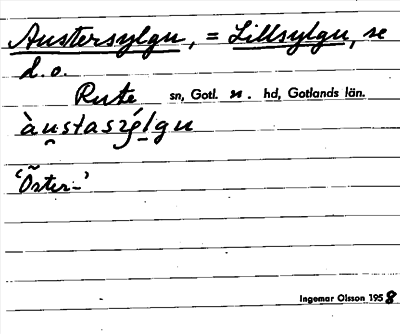 Austersylgu, = Lillsylgu, se
d.o.
Rute sn, Gotl. n. hd, Gotlands län.
àu̯stasýl̲gu
'Öster-'
Ingemar Olsson 1958